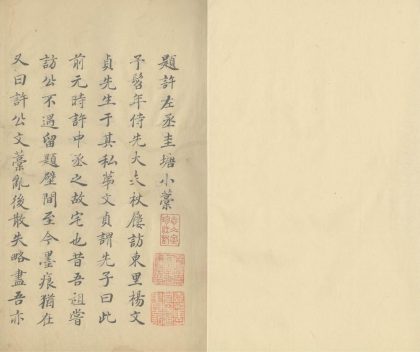 題許左丞圭塘小藁
予髫年侍先大夫杖屨訪東里楊文
貞先生于其私第文貞謂先子曰此
前元時許中丞之故宅也昔吾祖嘗
訪公不遇留題壁間至今墨痕猶在
又曰許公文藁亂後散失略盡吾亦